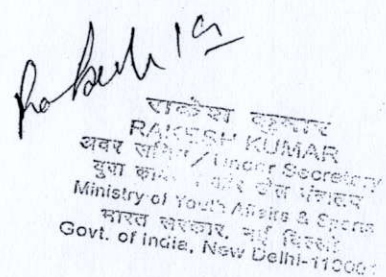 Rakesh
राकेश कुमार
RAKESH KUMAR
अवर सचिव / Under Secretary
युवा कार्य और खेल मंत्रालय
Ministry of Youth Affairs & Sports
भारत सरकार, नई दिल्ली
Govt. of India, New Delhi-110001